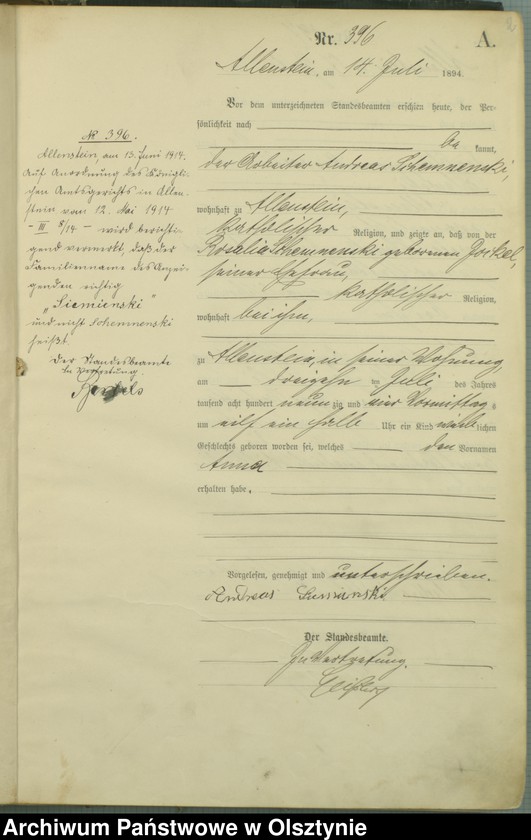 Nr. 396
A.
Allenstein, am 14. Juli 1894.
Vor dem unterzeichneten Standesbeamten erschien heute, der Per-
sönlichkeit nach
be kannt,
der Arbeiter Andreas Schemnenski,
wohnhaft zu Allenstein,
katholischer Religion, und zeigte an, daß von der
Rosalia Schemnenski geborenen
seiner Ehefrau,
katholischer Religion,
wohnhaft bei ihm,
zu Allenstein, in seiner Wohnung,
am dreizehn ten Juli des Jahres
tausend acht hundert neunzig und vier Vormittag s
um eilf ein halb Uhr ein Kind weib lichen
Geschlechts geboren worden sei, welches den Vornamen
Anna
erhalten habe.
Vorgelesen, genehmigt und unterschrieben.
Andreas
Der Standesbeamte.
In Vertretung.
№ 396.
Allenstein, am 13. Juni 1914.
Auf Anordnung des Königli-
chen Amtsgerichts in Allen-
stein vom 12. Mai 1914
- III 8/14 - wird berichti-
gend vermerkt, daß der
Familienname des Anzei-
genden richtig
„Siemienski"
und nicht Schemnenski
heißt.
Der Standesbeamte
In Vertretung.
Archiwum Państwowe w Olsztynie